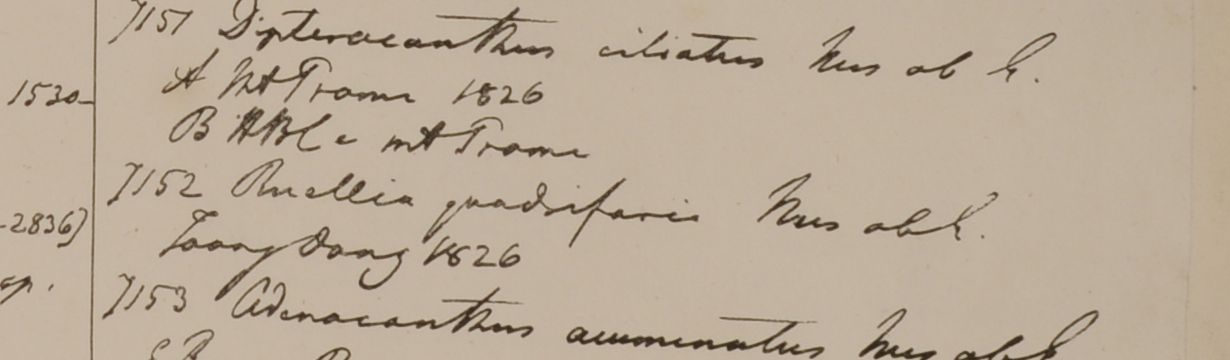 7151 Dipteracanthus ciliatus Nus ab E.
1530
A Mt Trome 1826
B HBC e mt Trome
7152 Ruellia quadrifaria Nus ab E.
-2836)
Toong Dong 1826
sp.
7153 Adenacanthus acuminatus Nus ab E